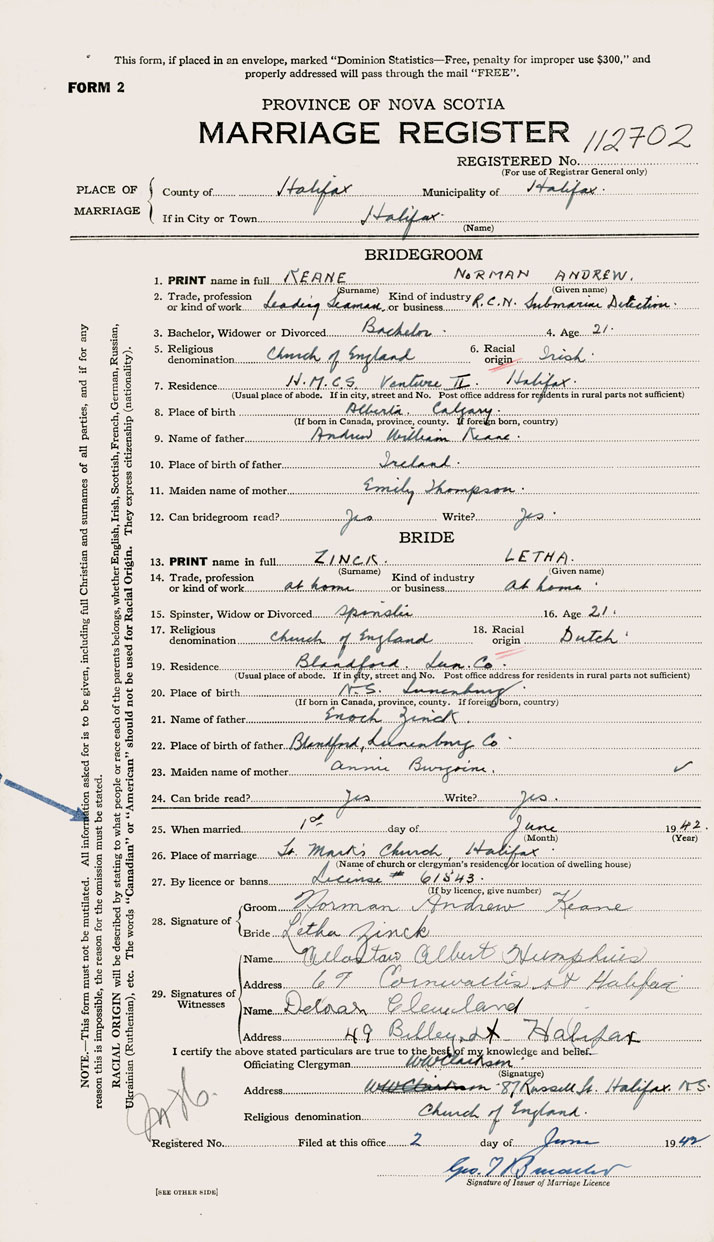 This form, if placed in an envelope, marked "Dominion Statistics—Free, penalty for improper use $300," and
properly addressed will pass through the mail "FREE".
FORM 2
PROVINCE OF NOVA SCOTIA
MARRIAGE REGISTER 112702
REGISTERED No.
(For use of Registrar General only)
PLACE OF MARRIAGE
County of Halifax Municipality of Halifax.
If in City or Town Halifax.
(Name)
BRIDEGROOM
1. PRINT name in full KEANE NORMAN ANDREW.
(Surname) (Given name)
2. Trade, profession or kind of work Leading Seaman Kind of industry or business R.C.N. Submarine Detection.
3. Bachelor, Widower or Divorced Bachelor. 4. Age 21.
5. Religious denomination Church of England 6. Racial origin Irish.
7. Residence H.M.C.S. Venture II. Halifax.
(Usual place of abode. If in city, street and No. Post office address for residents in rural parts not sufficient)
8. Place of birth Alberta. Calgary.
(If born in Canada, province, county. If foreign born, country)
9. Name of father Andrew William Keane.
10. Place of birth of father Ireland.
11. Maiden name of mother Emily Thompson.
12. Can bridegroom read? Yes Write? Yes.
BRIDE
13. PRINT name in full ZINCK. LETHA.
(Surname) (Given name)
14. Trade, profession or kind of work at home Kind of industry or business at home.
15. Spinster, Widow or Divorced 16. Age 21.
17. Religious denomination Church of England 18. Racial origin Dutch.
19. Residence Blandford. Lun. Co.
(Usual place of abode. If in city, street and No. Post office address for residents in rural parts not sufficient)
20. Place of birth N.S. Lunenburg
(If born in Canada, province, county. If foreign born, country)
21. Name of father Enoch Zinck.
22. Place of birth of father Blandford, Lunenburg Co.
23. Maiden name of mother Annie Burgoine. ✓
24. Can bride read? Yes Write? Yes.
25. When married 1st day of June 1942.
(Month) (Year)
26. Place of marriage St. Mark's Church, Halifax.
(Name of church or clergyman's residence or location of dwelling house)
27. By licence or banns License # 61543.
(If by licence, give number)
28. Signature of
Groom Norman Andrew Keane
Bride Letha Zinck
29. Signatures of Witnesses
Name Albert Humphries
Address 67 Cornwallis st Halifax
Name Cleveland
Address 49 Halifax
I certify the above stated particulars are true to the best of my knowledge and belief.
Officiating Clergyman WW Clarkson
(Signature)
Address 87 Russell St. Halifax. N.S.
Religious denomination Church of England.
Registered No. Filed at this office 2 day of June 1942
Geo.
Signature of Issuer of Marriage Licence
[SEE OTHER SIDE]
NOTE.—This form must not be mutilated. All information asked for is to be given, including full Christian and surnames of all parties, and if for any
reason this is impossible, the reason for the omission must be stated.
RACIAL ORIGIN will be described by stating to what people or race each of the parents belongs, whether English, Irish, Scottish, French, German, Russian,
Ukrainian (Ruthenian), etc. The words "Canadian" or "American" should not be used for Racial Origin. They express citizenship (nationality).